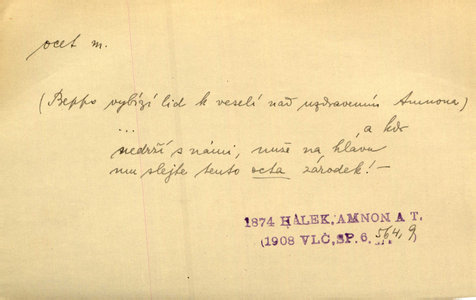 ocet m.
(Beppo vybízí lid k veselí nad uzdravením Amnona)
... a kdo
nedrží s námi, nuže na hlavu
mu slejte tento octa zárodek! —
1874 HÁLEK, AMNON A T.
(1908 VLČ, SP. 6, 564, 9)